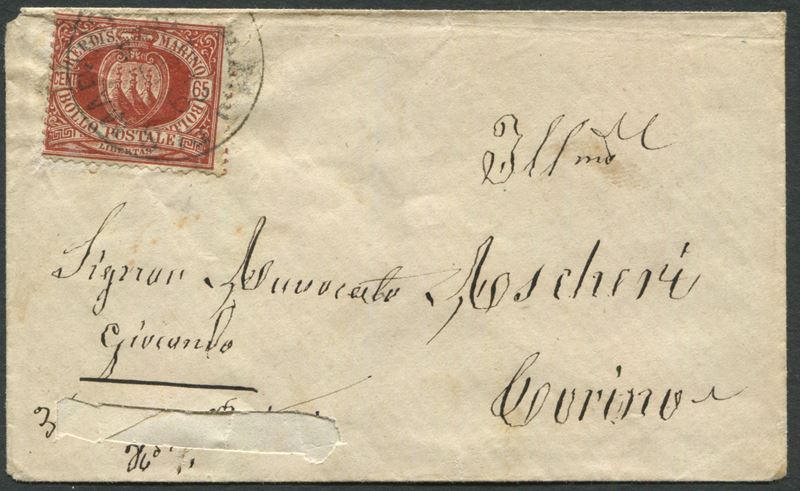 REP. DI S. MARINO
CENT 65
BOLLO POSTALE
LIBERTAS
Ill.mo
Signor Avvocato Ascheri
Giocondo
Torino